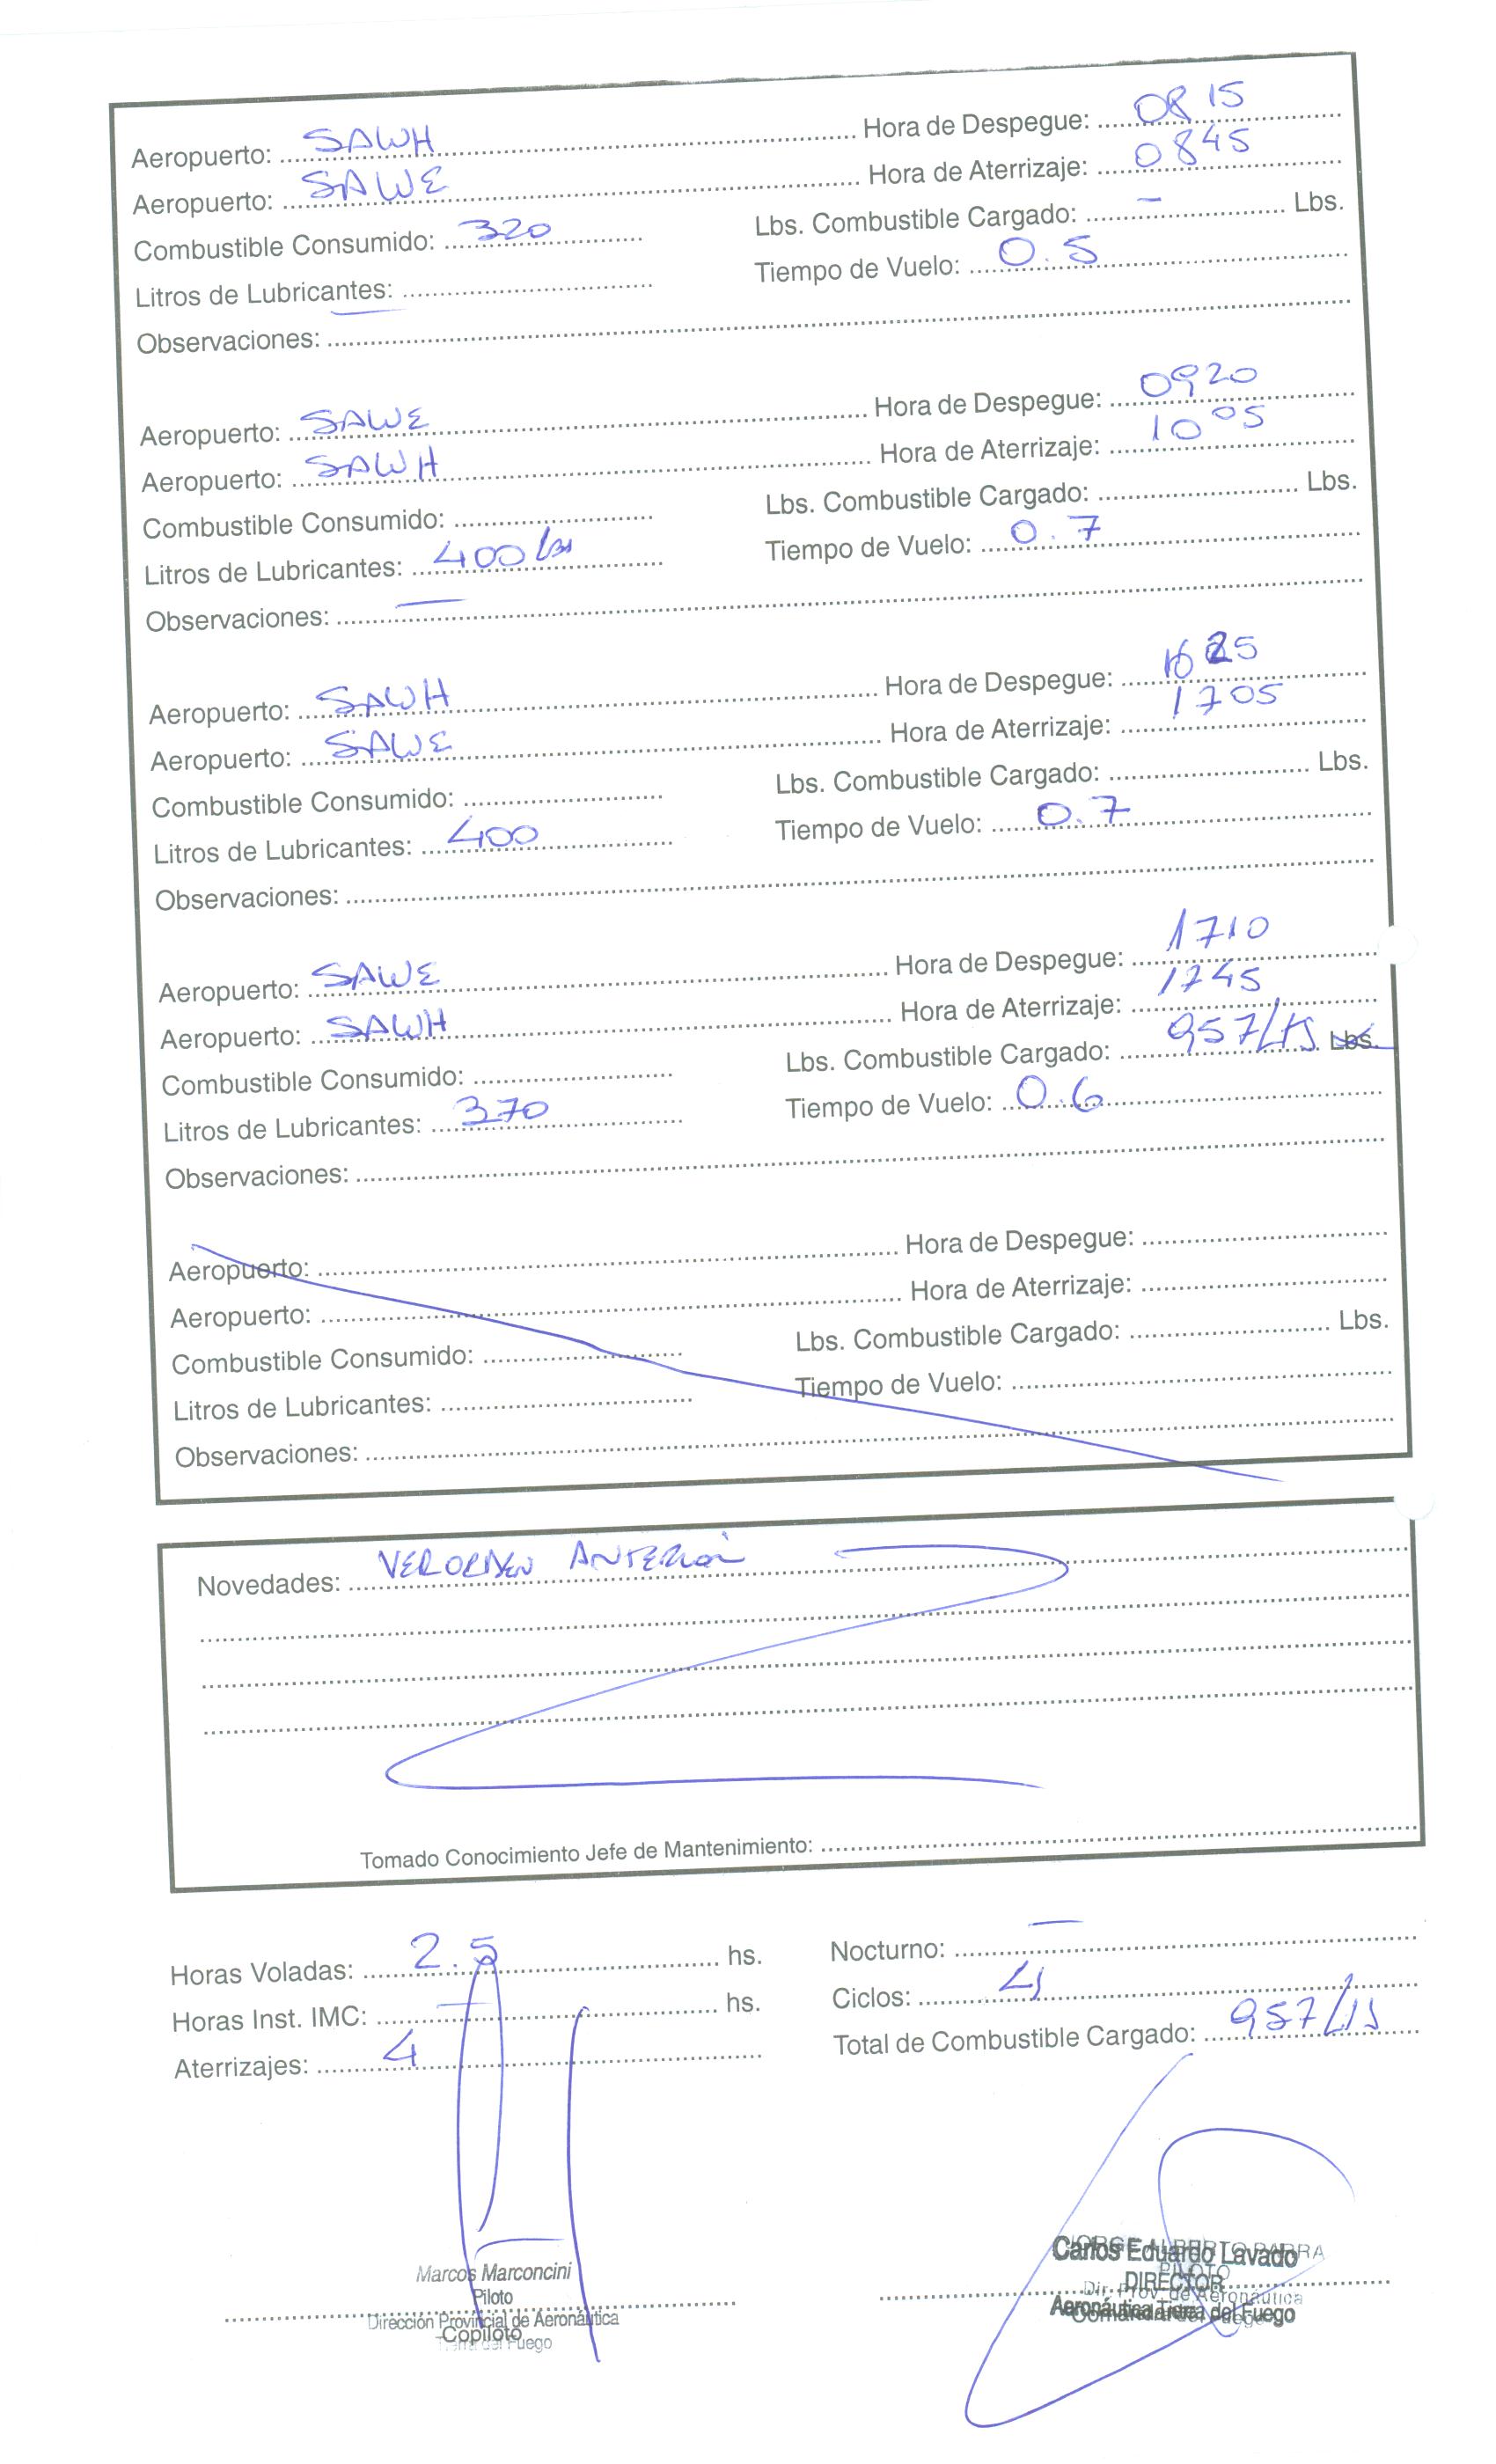 Aeropuerto: SAWH Hora de Despegue: 0815
Aeropuerto: SAWE Hora de Aterrizaje: 0845
Combustible Consumido: 320 Lbs. Combustible Cargado: - Lbs.
Litros de Lubricantes: Tiempo de Vuelo: 0.5
Observaciones:
Aeropuerto: SAWE Hora de Despegue: 0920
Aeropuerto: SAWH Hora de Aterrizaje: 1005
Combustible Consumido: Lbs. Combustible Cargado: Lbs.
Litros de Lubricantes: 400 lbs Tiempo de Vuelo: 0.7
Observaciones: —
Aeropuerto: SAWH Hora de Despegue: 1625
Aeropuerto: SAWE Hora de Aterrizaje: 1705
Combustible Consumido: Lbs. Combustible Cargado: Lbs.
Litros de Lubricantes: 400 Tiempo de Vuelo: 0.7
Observaciones:
Aeropuerto: SAWE Hora de Despegue: 1710
Aeropuerto: SAWH Hora de Aterrizaje: 1745
Combustible Consumido: Lbs. Combustible Cargado: 957 Lbs.
Litros de Lubricantes: 370 Tiempo de Vuelo: 0.6
Observaciones:
Aeropuerto: Hora de Despegue:
Aeropuerto: Hora de Aterrizaje:
Combustible Consumido: Lbs. Combustible Cargado: Lbs.
Litros de Lubricantes: Tiempo de Vuelo:
Observaciones:
Novedades: VER ORDEN ANTERIOR
Tomado Conocimiento Jefe de Mantenimiento:
Horas Voladas: 2.5 hs. Nocturno: —
Horas Inst. IMC: — hs. Ciclos: 4
Aterrizajes: 4 Total de Combustible Cargado: 957
Marcos Marconcini
Piloto
Dirección Provincial de Aeronáutica
Copiloto
Tierra del Fuego
JORGE ALBERTO PARRA
Carlos Eduardo Lavado
PILOTO
DIRECTOR
Dir. Prov. de Aeronáutica
Aeronáutica Tierra del Fuego